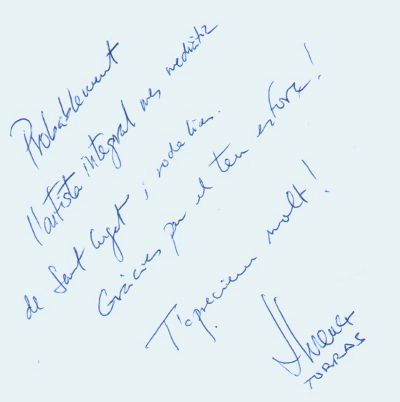 Probablement
l'artista integral més mediàtic
de Sant Cugat i rodalies.
Gràcies pel teu esforç!
T'apreciem molt!
TORRAS